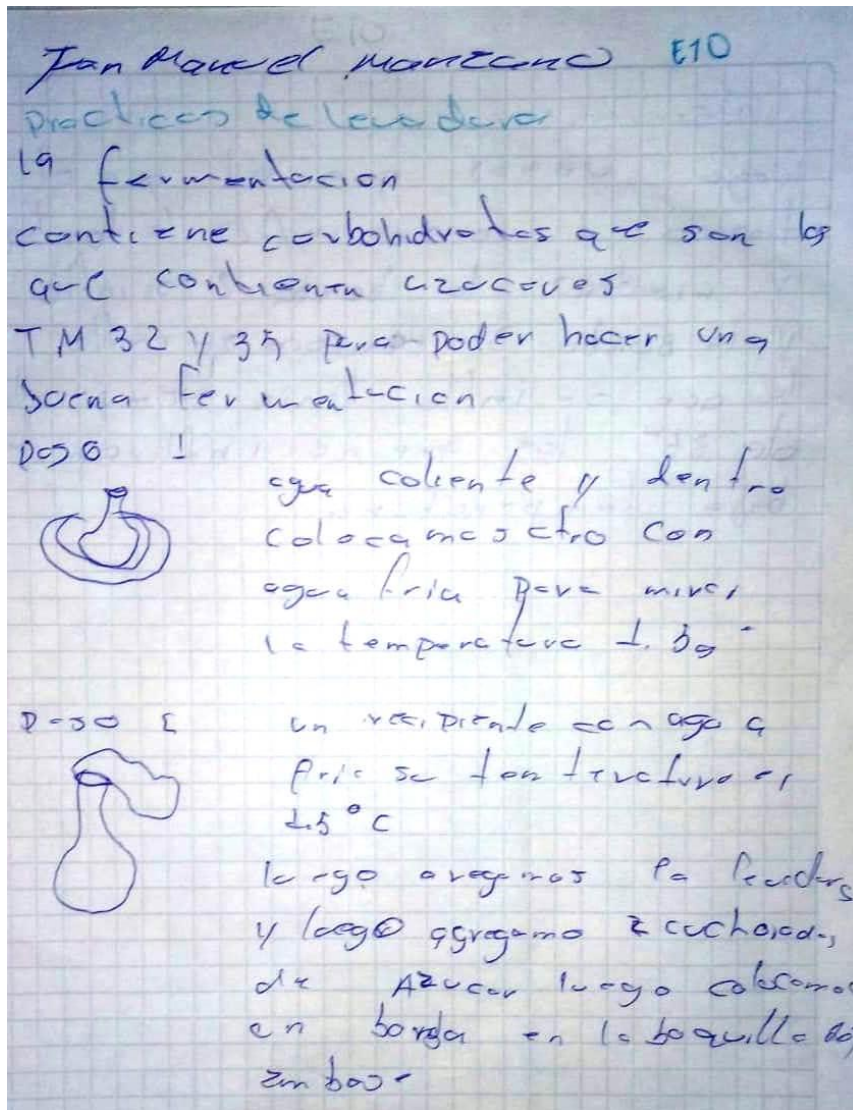 Juan Manuel Manzano E10
Practicas de levadura
la fermentacion
contiene carbohidratos que son los
que contienen azucares
TM 32 y 35 para poder hacer una
buena fermentacion
Paso 1
agua caliente y dentro
colocamos otro con
agua fria para mirar
la temperatura
Paso
un recipiente con agua
fria su
1.5°C
luego agregamos la levadura
y luego agregamo 2 cucharadas
de Azucar luego colocamos
en en la boquilla